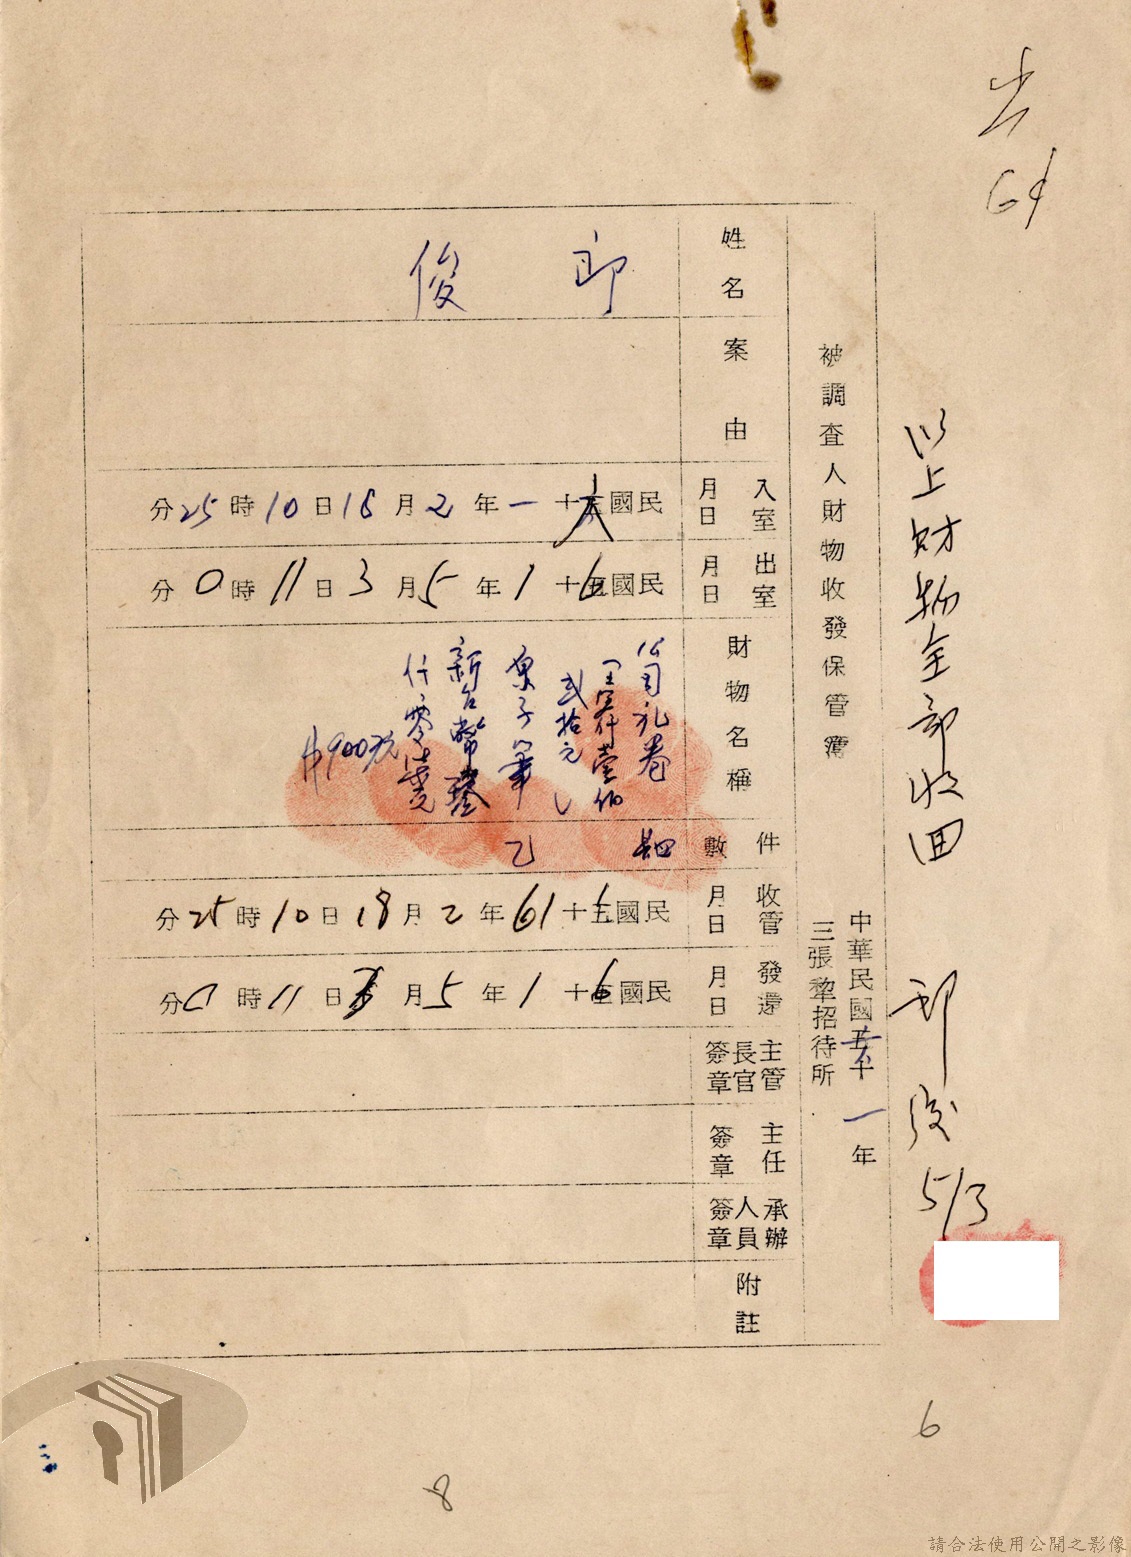 64
以上財物全部收回
郎俊 5/3
中華民國六十一年
三張犂招待所
被調查人財物收發保管簿
姓名
郎俊
案由
入室月日
民國六十一年2月18日10時25分
出室月日
民國六十1年5月3日11時0分
財物名稱
公司礼卷
貳拾元
原子筆
新台幣
900元
件數
乙
收管月日
民國五十61年2月18日10時25分
發還月日
民國六十1年5月3日11時0分
主管長官簽章
主任簽章
承辦人員簽章
附註
6
8
請合法使用公開之影像